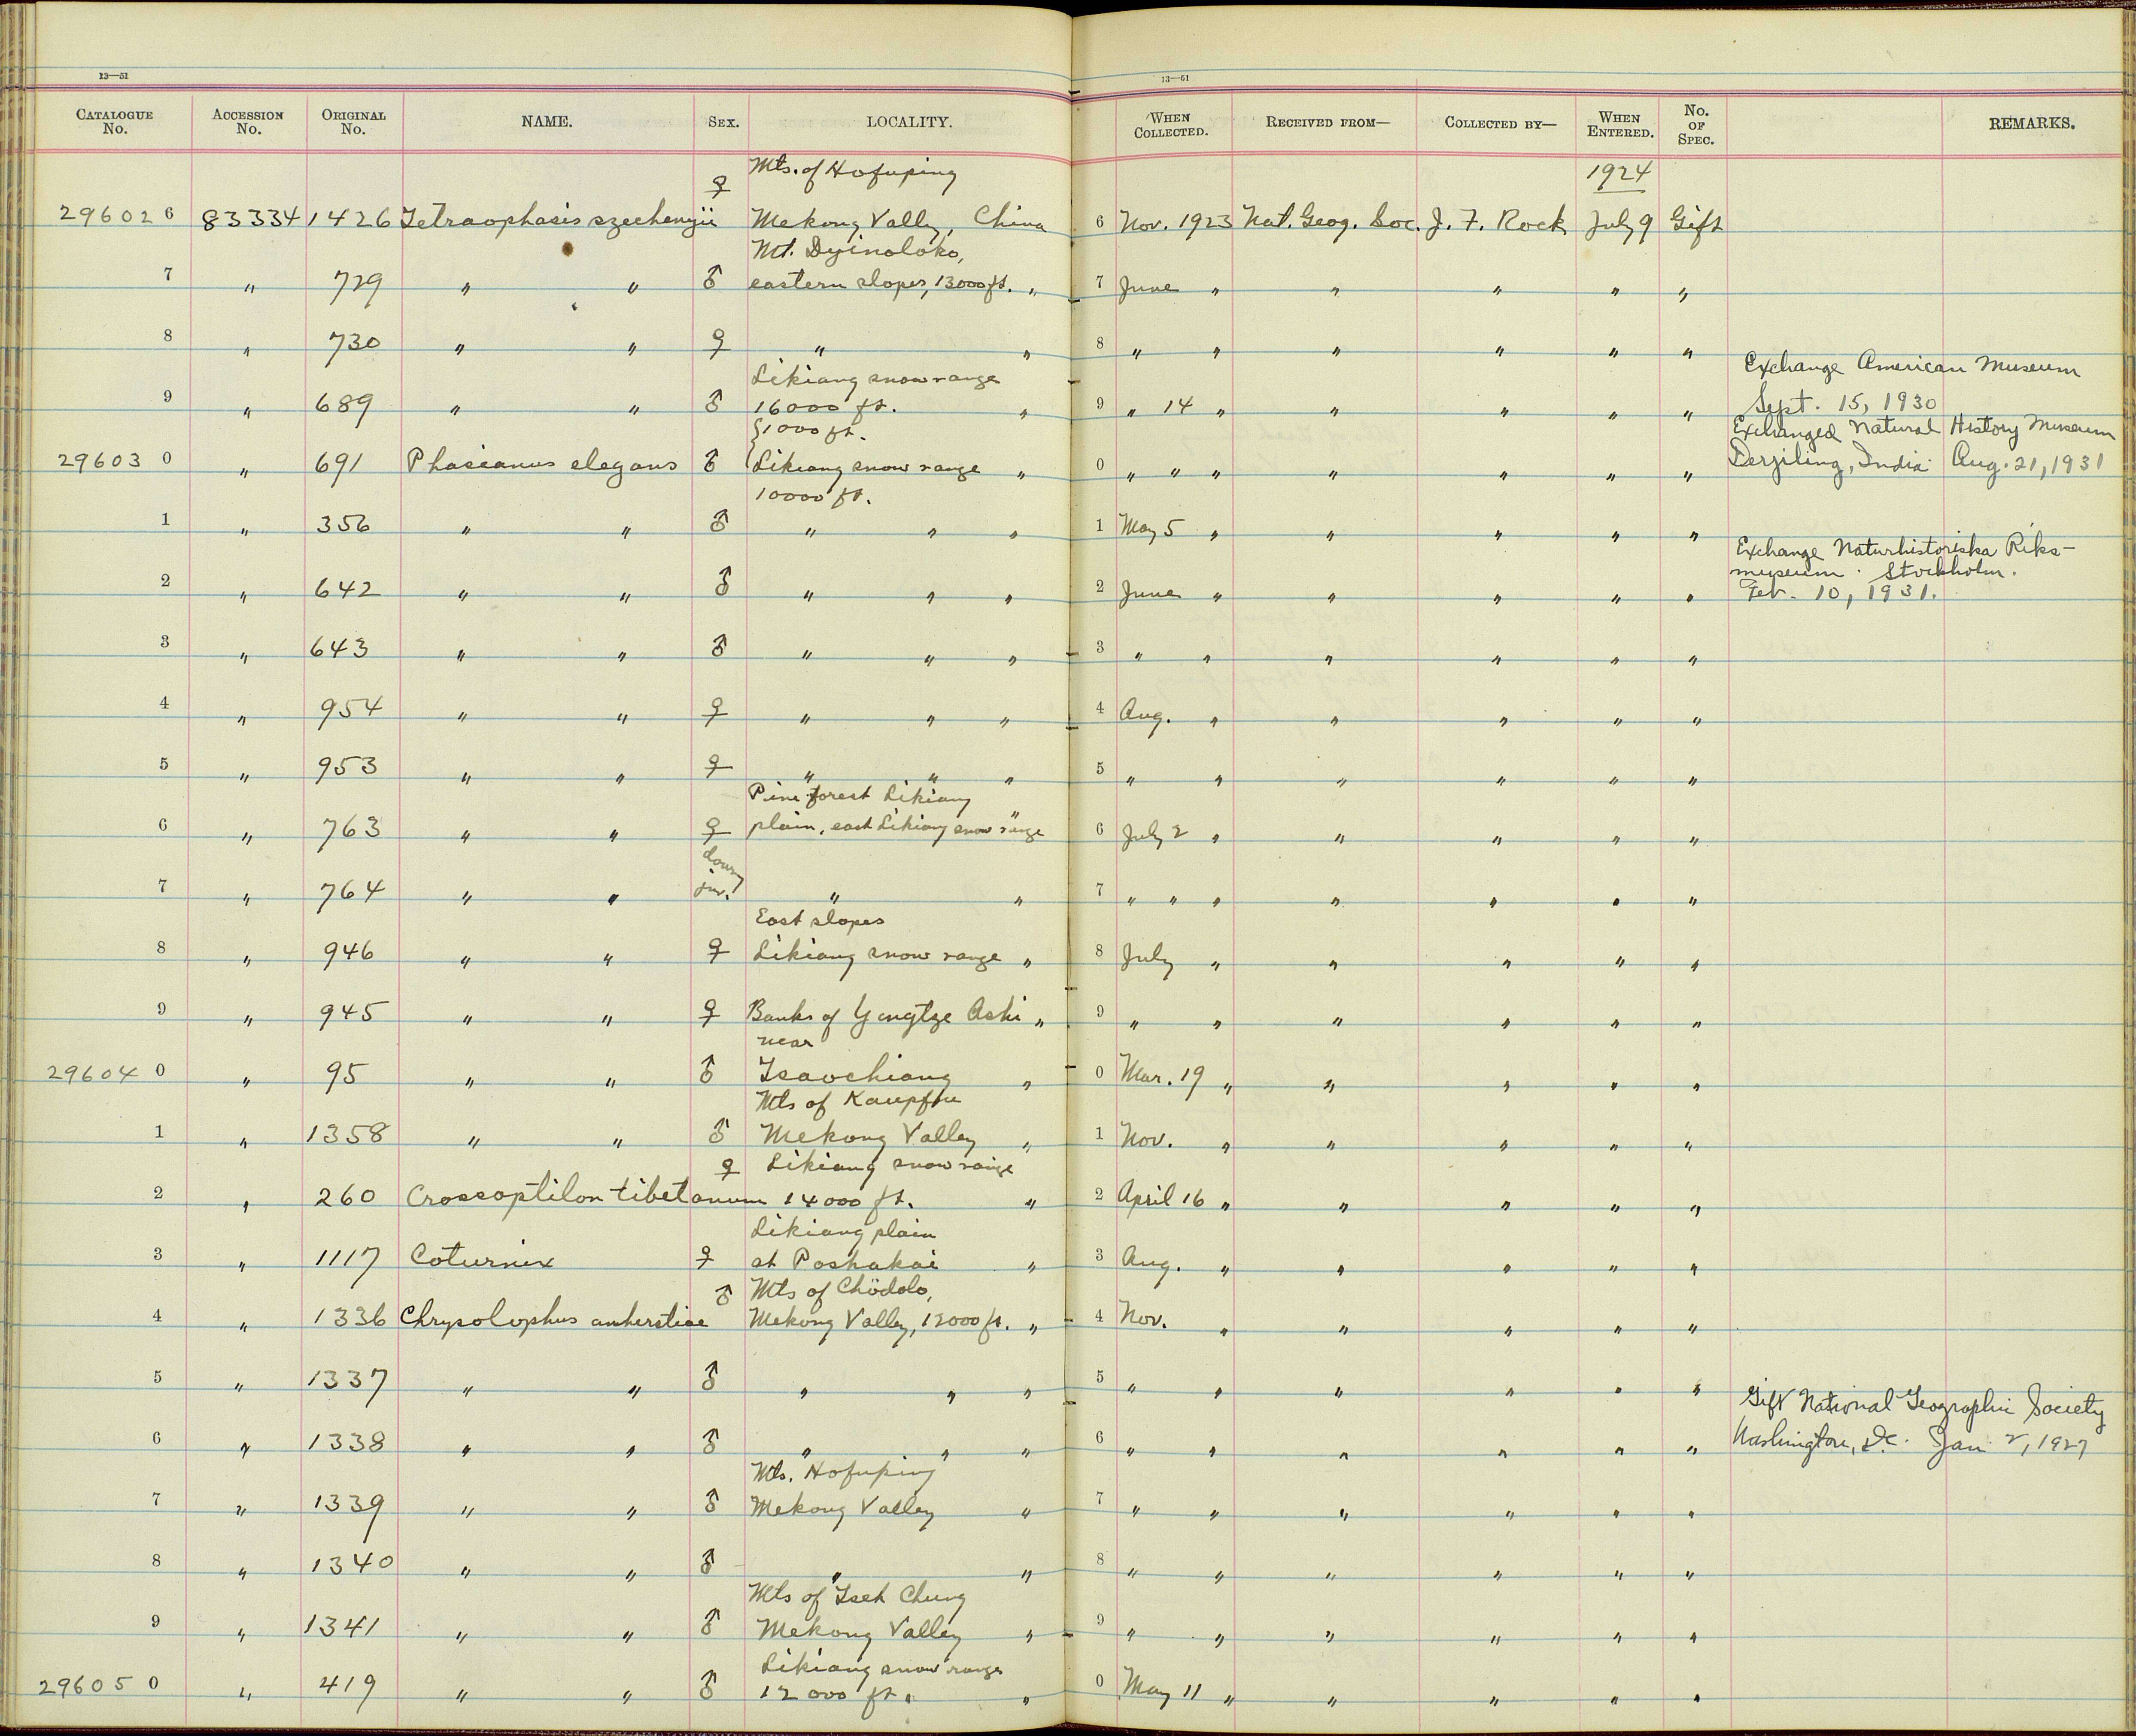 13—51
13—51
CATALOGUE No. ACCESSION No. ORIGINAL No. NAME. SEX. LOCALITY. WHEN COLLECTED. RECEIVED FROM— COLLECTED BY— WHEN ENTERED. No. OF SPEC. REMARKS.
♀ Mts. of Hofuping 1924
296026 83334 1426 Tetraophasis szechenyii Mekong Valley, China 6 Nov. 1923 Nat. Geog. Soc. J. F. Rock July 9 Gift
Mt. Dyinoloko,
7 " 729 " " ♂ eastern slopes, 13000 ft. " 7 June " " " " "
8 " 730 " " ♀ " " 8 " " " " " "
Likiang snow range Exchange American Museum
9 " 689 " " ♂ 16000 ft. " 9 " 14 " " " " " Sept. 15, 1930
1000 ft. Exchanged Natural History Museum
296030 " 691 Phasianus elegans ♂ Likiang snow range " 0 " " " " " " " Derjiling, India Aug. 21, 1931
10000 ft.
1 " 356 " " ♂ " " " 1 May 5 " " " " "
Exchange Naturhistoriska Riks-
museum. Stockholm.
2 " 642 " " ♂ " " " 2 June " " " " " Feb. 10, 1931.
3 " 643 " " ♂ " " " 3 " " " " " "
4 " 954 " " ♀ " " " 4 Aug. " " " " "
5 " 953 " " ♀ " " " 5 " " " " " "
Pine forest Likiang
6 " 763 " " ♀ plain, east Likiang snow range " 6 July 2 " " " " "
downy
7 " 764 " " juv. " " 7 " " " " " " "
East slopes
8 " 946 " " ♀ Likiang snow range " 8 July " " " " "
9 " 945 " " ♀ Banks of Yangtze Ashi " 9 " " " " " "
near
296040 " 95 " " ♂ Tsaochiang " 0 Mar. 19 " " " " "
Mts of Kaupfu
1 " 1358 " " ♂ Mekong Valley " 1 Nov. " " " " "
♀ Likiang snow range
2 " 260 Crossoptilon tibetanum 14000 ft. " 2 April 16 " " " " "
Likiang plain
3 " 1117 Coturnix ♀ at Poshakai " 3 Aug. " " " " "
♂ Mts of Chödolo,
4 " 1336 Chrysolophus amherstiae Mekong Valley, 12000 ft. " 4 Nov. " " " " "
5 " 1337 " " ♂ " " " 5 " " " " " "
Gift National Geographic Society
6 " 1338 " " ♂ " " " 6 " " " " " " Washington, D.C. Jan. 2, 1927
Mts. Hofuping
7 " 1339 " " ♂ Mekong Valley " 7 " " " " " "
8 " 1340 " " ♂ " " 8 " " " " " "
Mts of Tseh Chung
9 " 1341 " " ♂ Mekong Valley " 9 " " " " " "
Likiang snow range
296050 " 419 " " ♂ 12000 ft. " 0 May 11 " " " " "